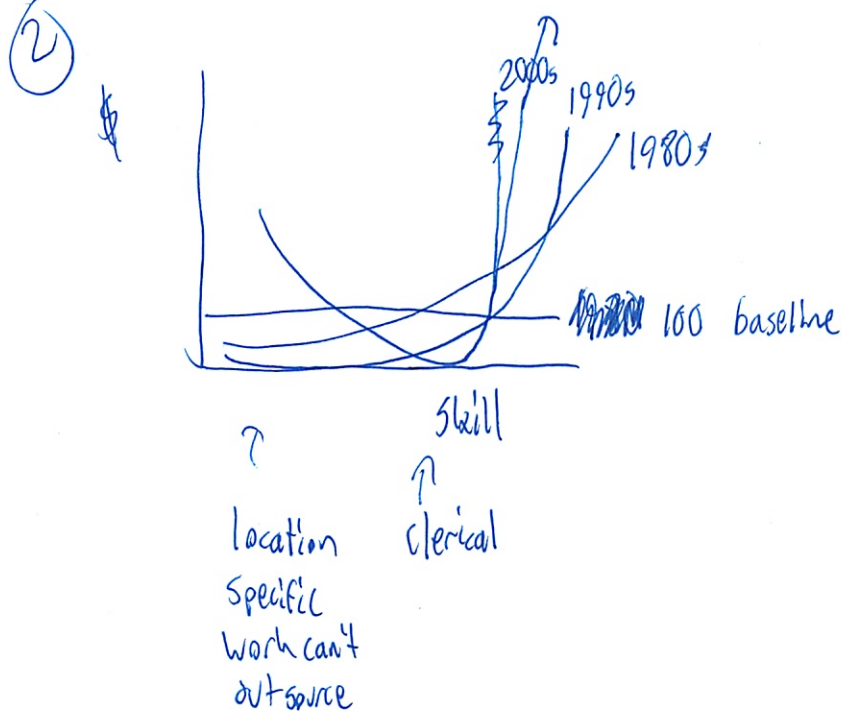 2
$
2000s
1990s
1980s
100 baseline
Skill
location
specific
work can't
outsource
clerical